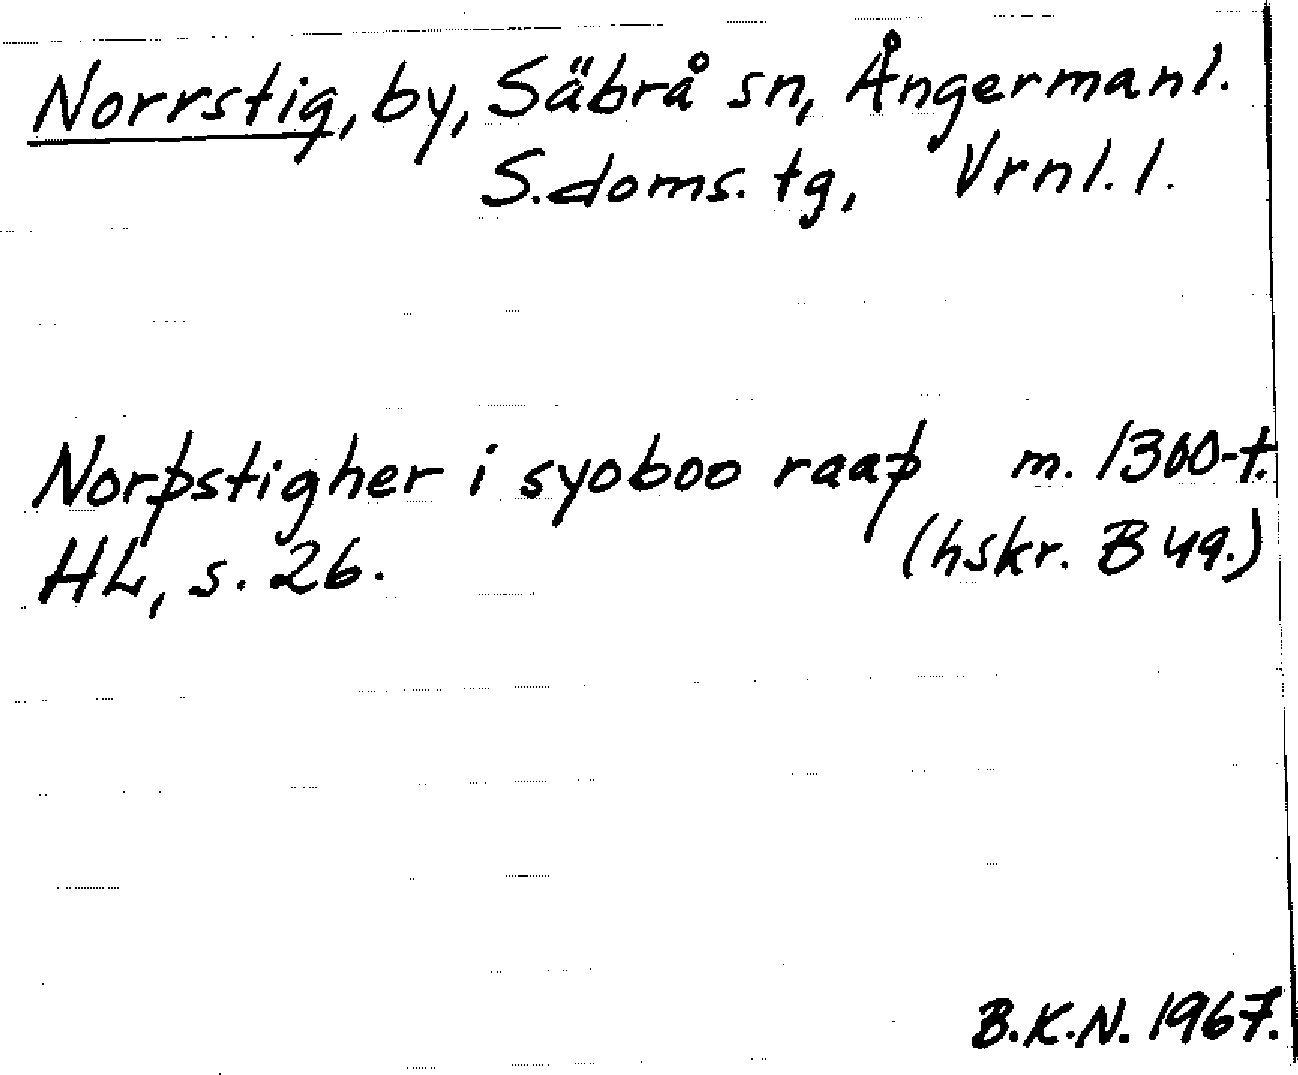 Norrstig, by, Säbrå sn, Ångermanl.
S. doms. tg, Vrnl. l.
Norþstigher i syoboo raaþ m. 1300-t.
HL, s. 26. (hskr. B 49.)
B.K.N. 1967.